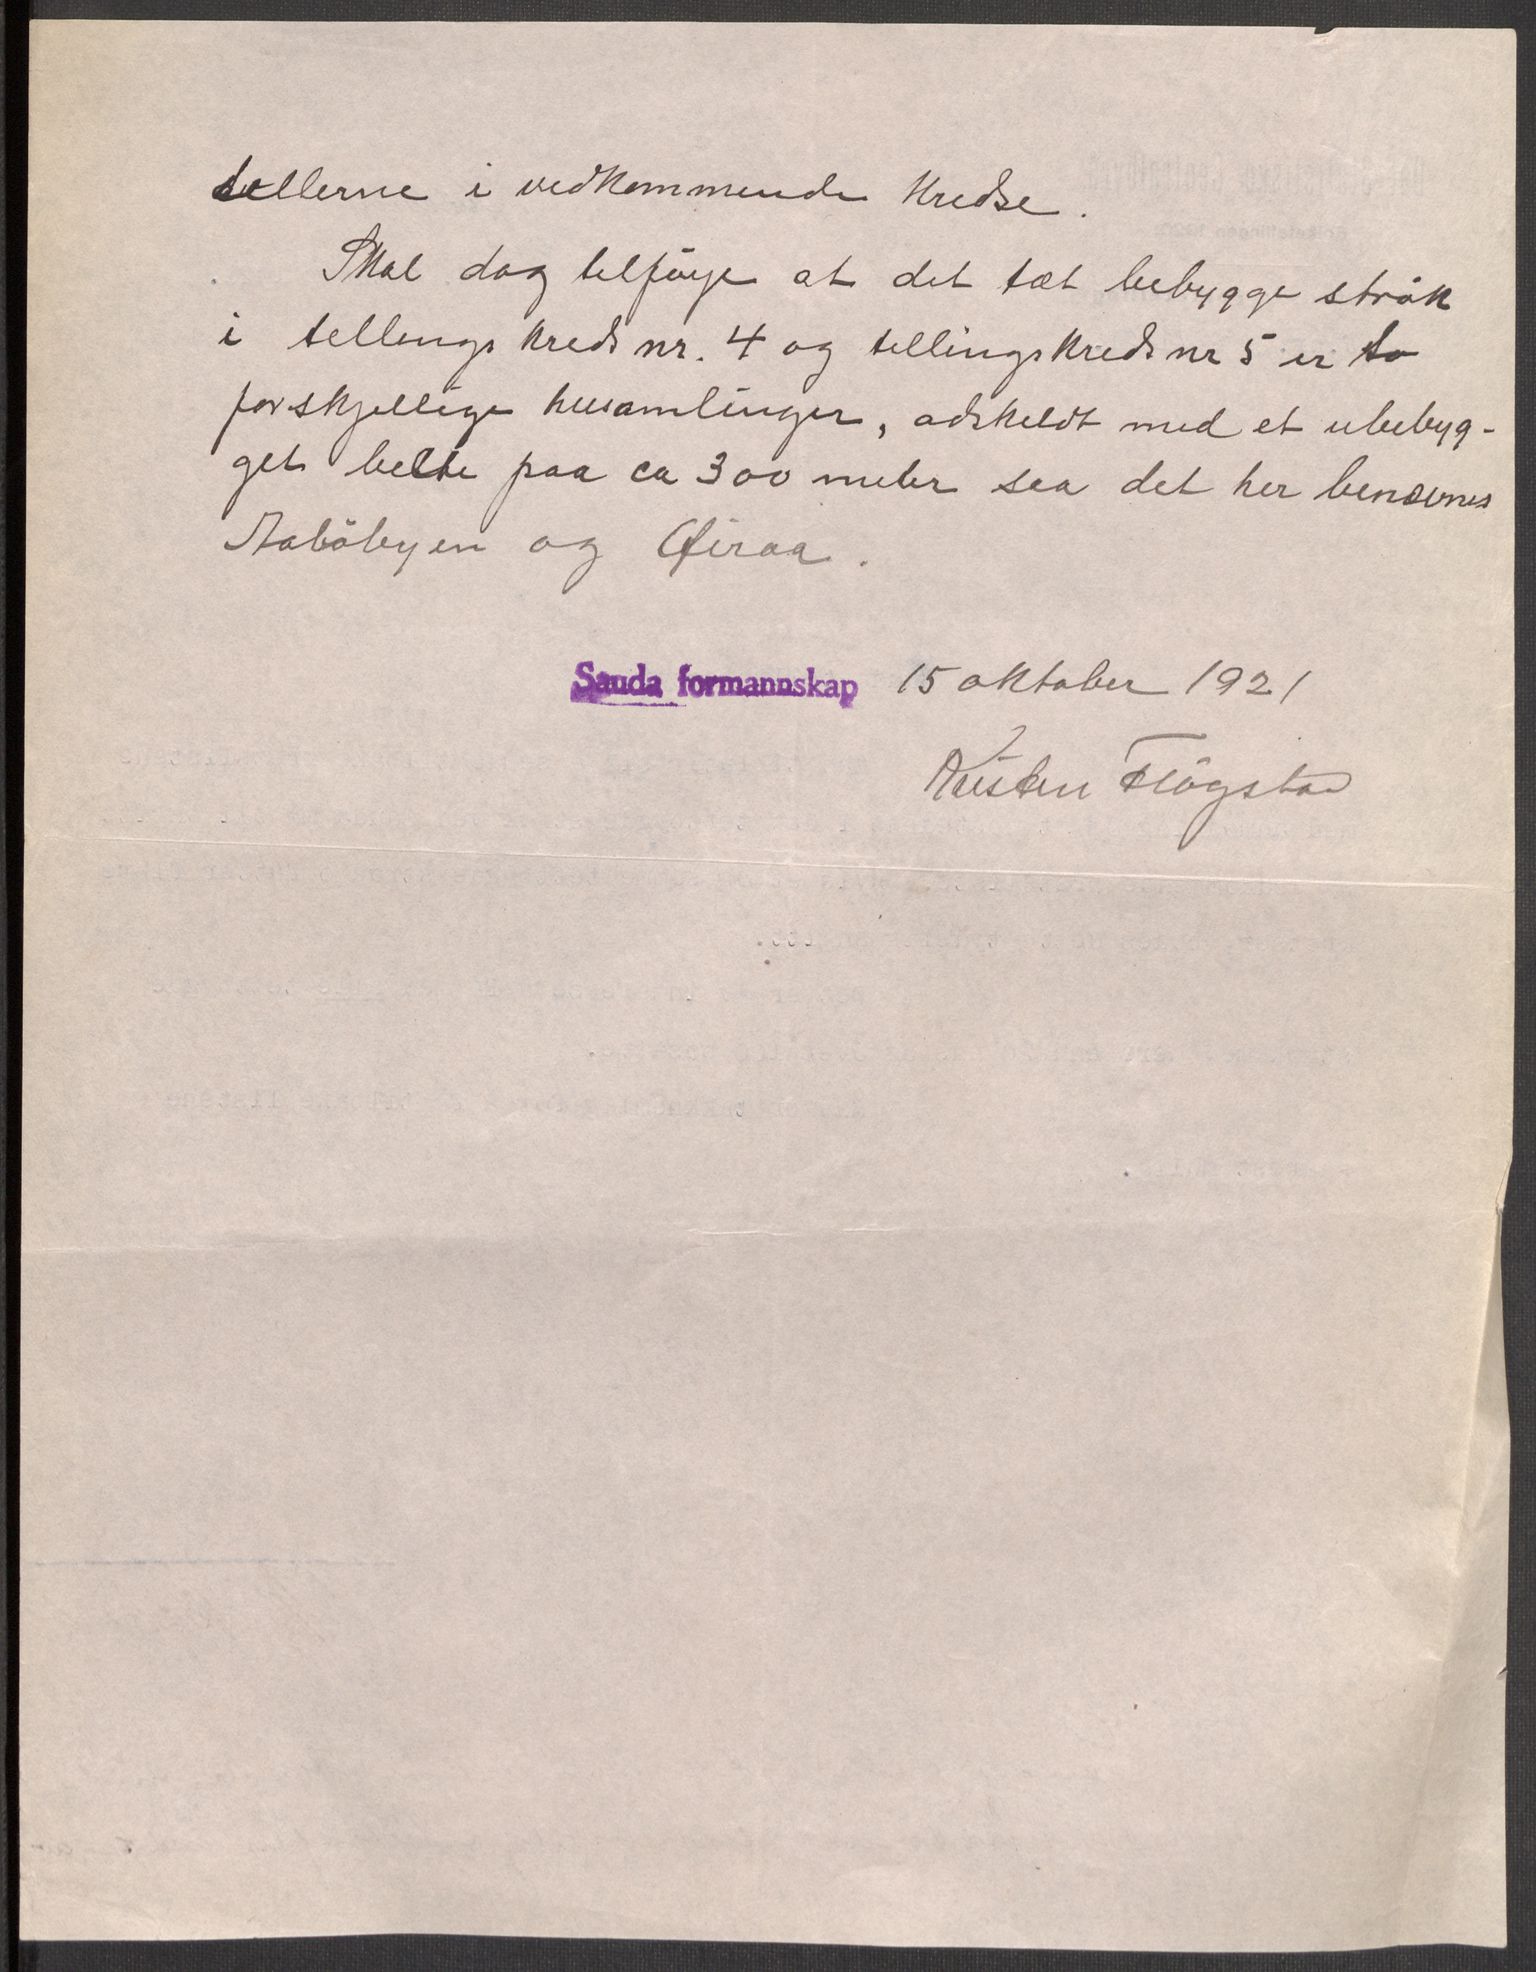 tellerne i vedkommende kredse.
Skal dog tilføye at det tæt bebygge strøk
i tellings kreds nr. 4 og tellingskreds nr 5 er to
forskjellige husamlinger, adskeldt med et ubebyg-
get belte paa ca 300 meter saa det her benævnes
Aabøbyen og Øiraa.
Sauda formannskap 15 oktober 1921
Kristen Fløgstad